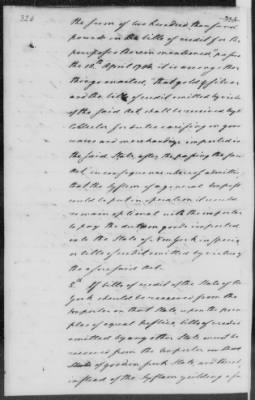 326
326
the sum of two hundred thousand
pounds in the bills of credit for the
purposes therein mentioned, passed
the 18th April 1786, it is among other
things enacted, "that gold & silver
and the bills of credit emitted by virtue
of the said Act, shall be received by the
Collector for duties arising on goods
wares and merchandize imported in
the said State, after the passing the said
Act, in consequence whereof admitting
that the System of a general Impost
could be put in operation it would
remain optional with the importer
to pay the duty on goods imported
into the State of New York in specie
or bills of credit emitted by virtue of
the aforesaid Act.
2d If bills of credit of the State of New
York should be received from the
Importer in that State, upon the prin
ples of equal Justice, bills of credit
emitted by any other State must be
received from the Importer in that
State of goods in such State, and thus
instead of the System yielding a